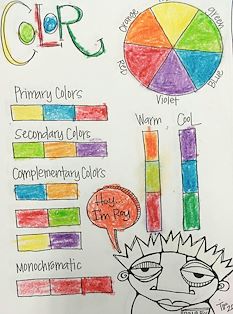 COLOR
orange
green
Red
Blue
Violet
Primary Colors
Secondary Colors
Complementary Colors
Monochromatic
Warm
Cool
Hey
I'm Ray